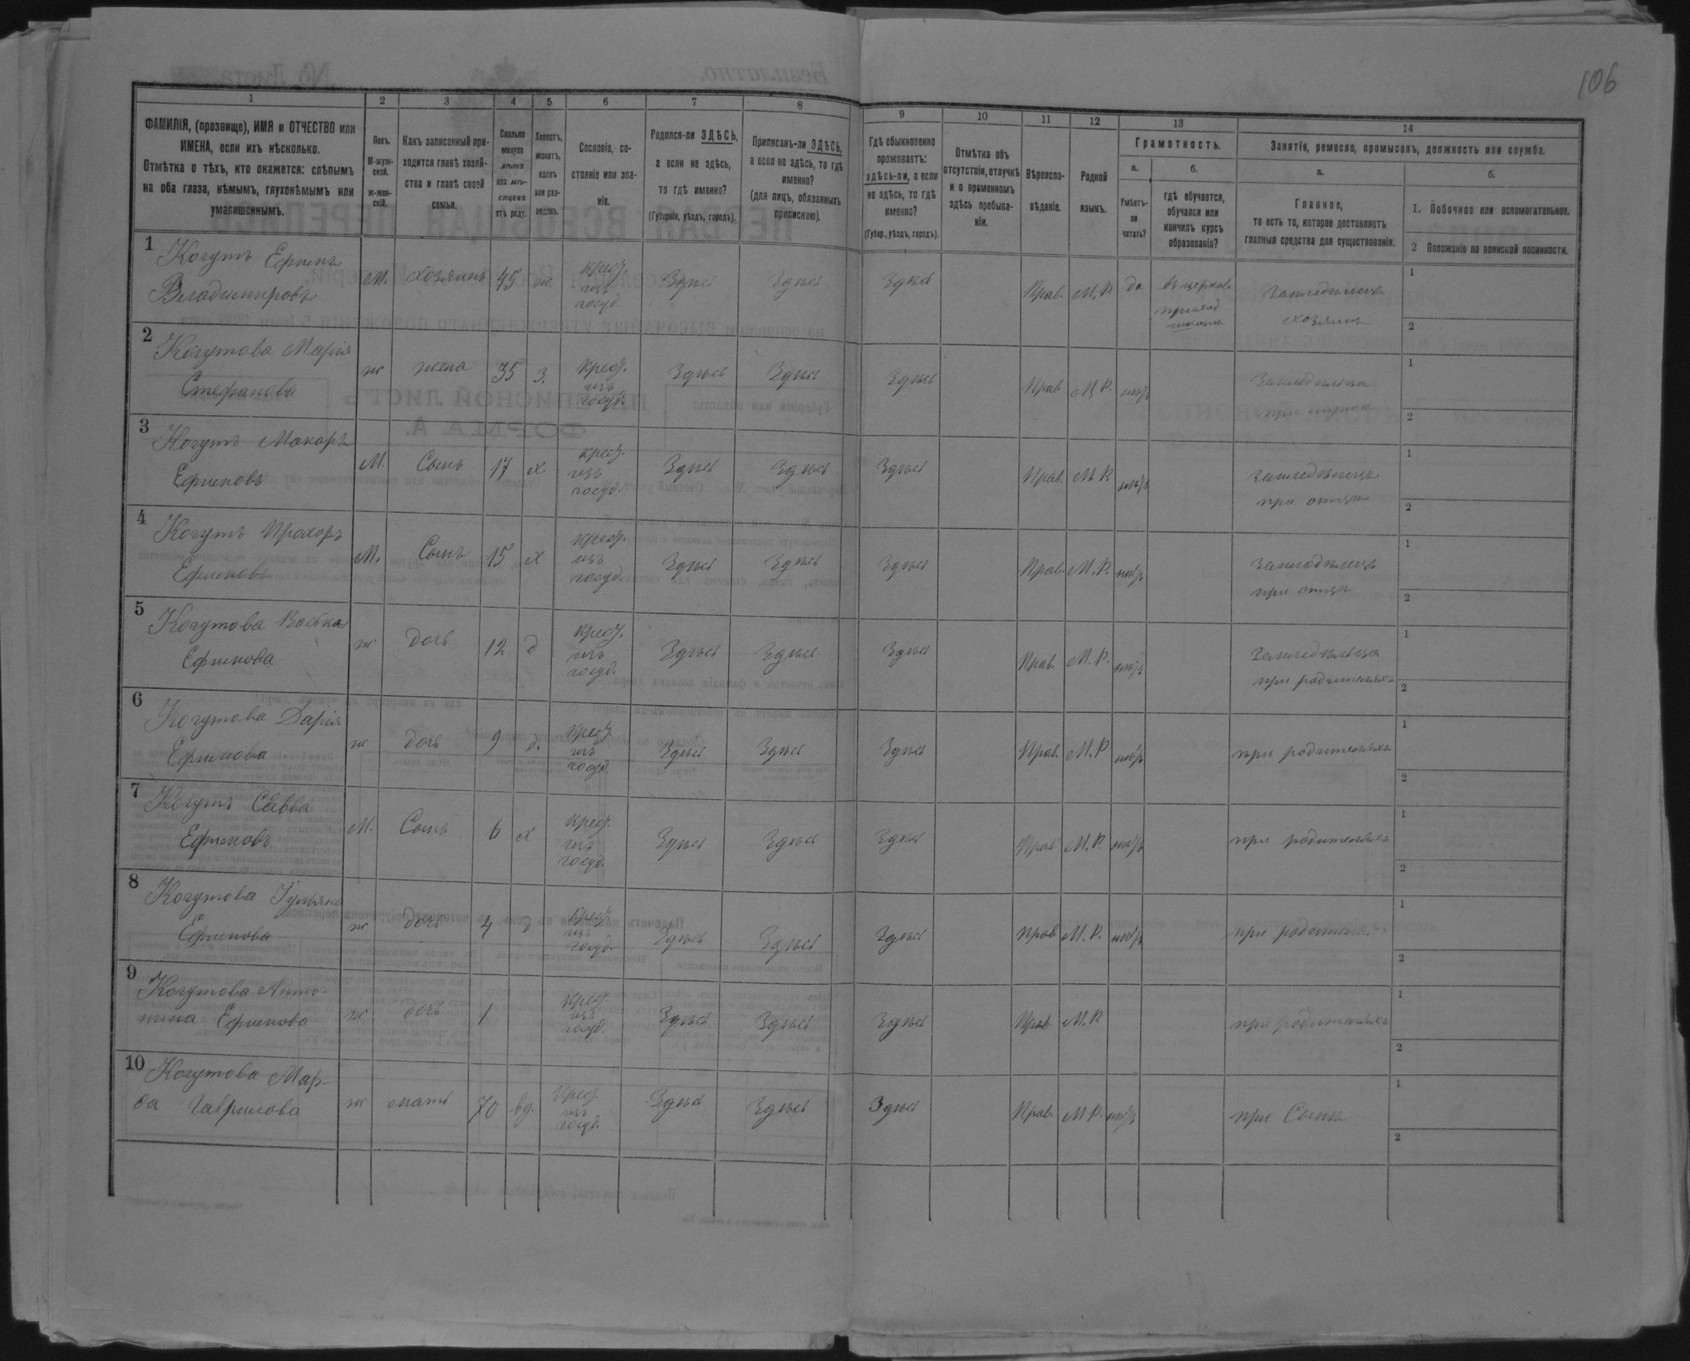 106
1 2 3 4 5 6 7 8 9 10 11 12 13 14
ФАМИЛІЯ, (прозвище), ИМЯ и ОТЧЕСТВО или
ИМЕНА, если ихъ нѣсколько.
Отмѣтка о тѣхъ, кто окажется: слѣпымъ
на оба глаза, нѣмымъ, глухонѣмымъ или
умалишеннымъ.
Полъ.
М-муж-
ской.
Ж-жен-
скій.
Какъ записанный при-
ходится главѣ хозяй-
ства и главѣ своей
семьи.
Сколько
минуло
лѣтъ
или мѣ-
сяцевъ
отъ роду.
Холостъ,
женатъ,
вдовъ
или раз-
веденъ.
Сословіе, со-
стояніе или зва-
ніе.
Родился-ли ЗДѢСЬ,
а если не здѣсь,
то гдѣ именно?
(Губернія, уѣздъ, городъ).
Приписанъ-ли ЗДѢСЬ,
а если не здѣсь, то гдѣ
именно?
(для лицъ, обязанныхъ
припискою).
Гдѣ обыкновенно
проживаетъ:
здѣсь-ли, а если
не здѣсь, то гдѣ
именно?
(Губер., уѣздъ, городъ).
Отмѣтка объ
отсутствіи, отлучкѣ
и о временномъ
здѣсь пребыва-
ніи.
Вѣроиспо-
вѣданіе.
Родной
языкъ.
Грамотность.
а. б.
Умѣетъ-
ли
читать?
гдѣ обучается,
обучался или
кончилъ курсъ
образованія?
Занятіе, ремесло, промыселъ, должность или служба.
а. б.
Главное,
то есть то, которое доставляетъ
главныя средства для существованія.
1. Побочное или вспомогательное.
2 Положеніе по воинской повинности.
1 Когутъ Ефимъ
Владимировъ М. хозяинъ 45 ж. крест. изъ госуд. Здѣсь Здѣсь Здѣсь Прав. М.Р. да въ церков. приход. школѣ Земледѣлецъ хозяинъ 1 2
2 Когутова Марія
Стефанова ж жена 35 з. крест. изъ госуд. Здѣсь Здѣсь Здѣсь Прав. М.Р. Земледѣлка при мужѣ 1 2
3 Когутъ Макаръ
Ефимовъ М. Сынъ 17 х крест. изъ госуд. Здѣсь Здѣсь Здѣсь Прав. М Р Земледѣлецъ при отцѣ 1 2
4 Когутъ Прохоръ
Ефимовъ М. Сынъ 15 х крест. изъ госуд. Здѣсь Здѣсь Здѣсь Прав. М.Р. Земледѣлецъ при отцѣ 1 2
5 Когутова
Ефимова ж дочь 12 д крест. изъ госуд. Здѣсь Здѣсь Здѣсь Прав. М.Р. при родителяхъ 1 2
6 Когутова Дарія
Ефимова ж дочь 9 д. крест. изъ госуд. Здѣсь Здѣсь Здѣсь Прав. М.Р при родителяхъ 1 2
7 Когутъ Савва
Ефимовъ М. Сынъ 6 х крест. изъ госуд. Здѣсь Здѣсь Здѣсь Прав М.Р. при родителяхъ 1 2
8 Когутова Iульяна
Ефимова ж дочь 4 д крест. изъ госуд. Здѣсь Здѣсь Здѣсь Прав М.Р. при родителяхъ 1 2
9 Когутова Анто-
нина Ефимова ж дочь 1 крест. изъ госуд. Здѣсь Здѣсь Здѣсь Прав. М.Р при родителяхъ 1 2
10 Когутова Мар-
ѳа Гаврилова ж мать 70 вд. Крест. изъ госуд. Здѣсь Здѣсь Здѣсь Прав. М.Р. при Сынѣ 1 2